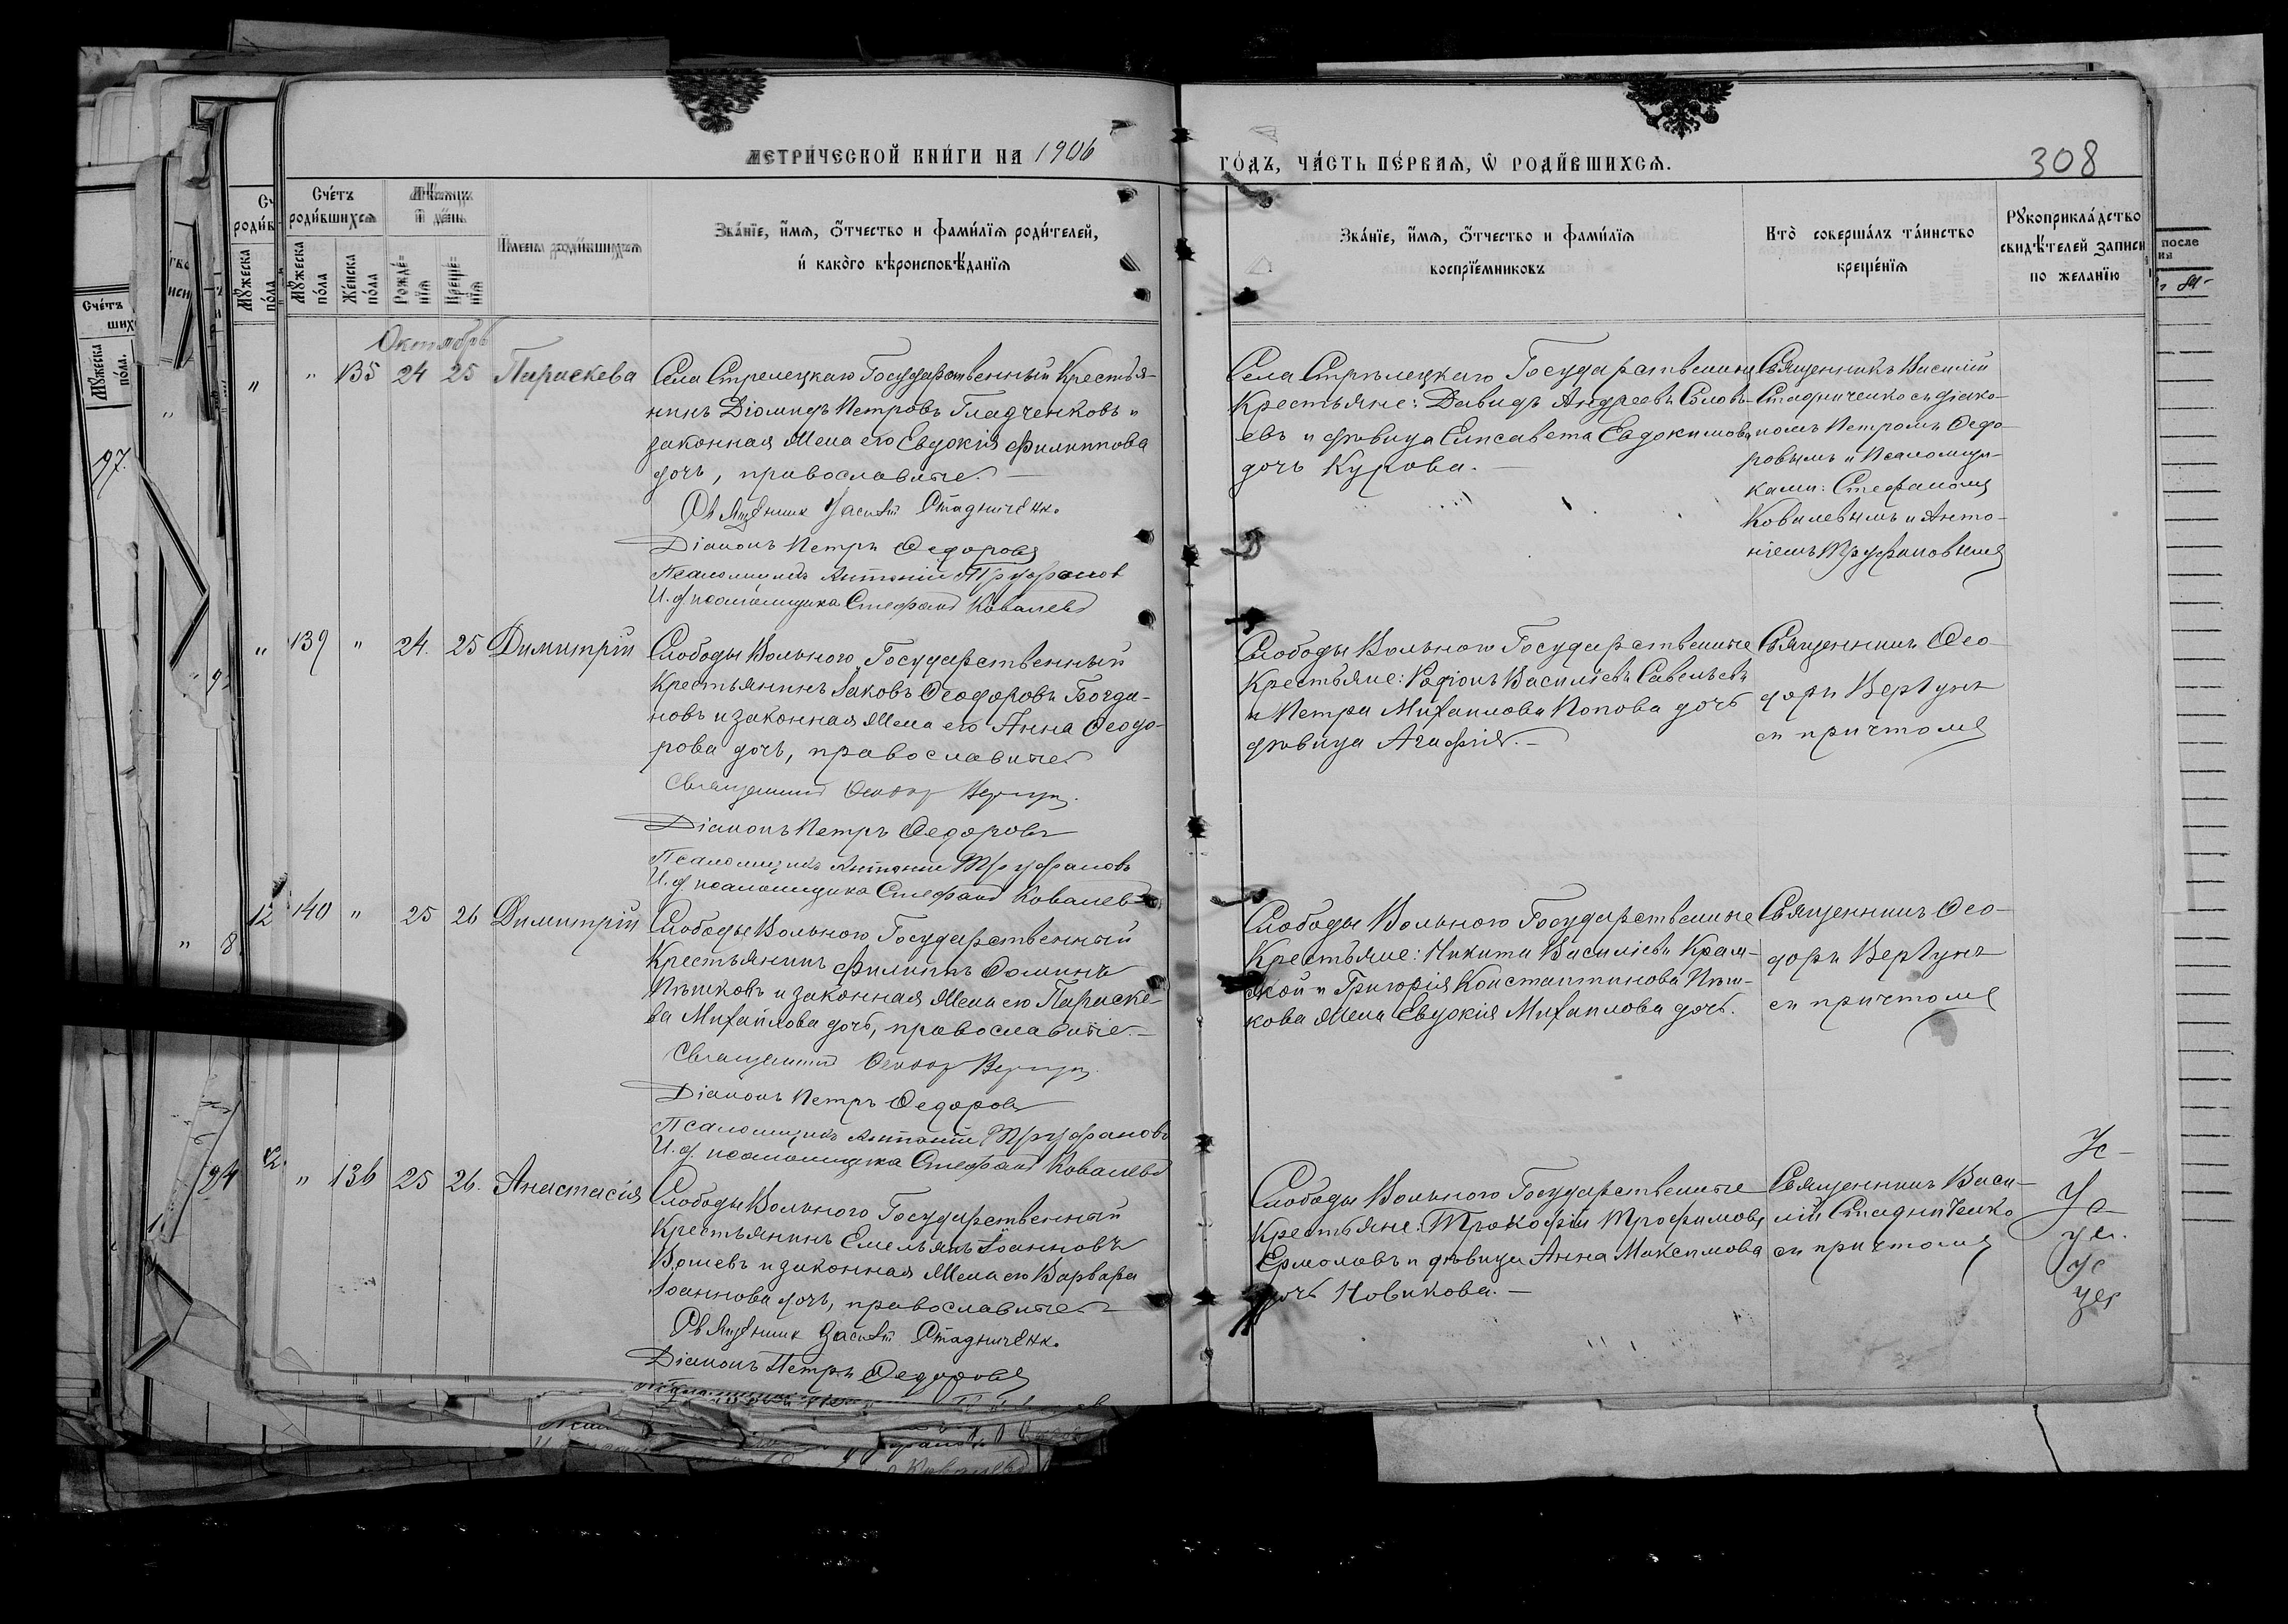 МЕТРИЧЕСКОЙ КНИГИ НА 1906
ГОДЪ, ЧАСТЬ ПЕРВАЯ, Ѡ РОДИВШИХСЯ.
308
Счетъ родившихся
Мужеска пола
Женска пола
Мѣсяцъ и день
Рожденія
Крещенія
Имена родившихся
Званіе, имя, отчество и фамилія родителей,
и какого вѣроисповѣданія
Званіе, имя, отчество и фамилія
воспріемниковъ
Кто совершалъ таинство
крещенія
Рукоприкладство
свидѣтелей записи
по желанію
Октябрь
" 135 24 25 Параскева
Села Стрелецкаго Государственный Крестья-
нинъ Діомидъ Петровъ Гладченковъ и
законная жена его Евдокія Филиппова
дочь, православные.
Священник Василій Стадниченко
Діаконъ Петръ Ѳедоровъ
Псаломщикъ Антоній Труфанов
И. д. псаломщика Стефанъ Ковалевъ
Села Стрѣлецкаго Государственные
Крестьяне: Давидъ Андреевъ Соловь-
евъ и дѣвица Елисавета Евдокимова
дочь Курова.
Священникъ Василій
Стадниченко съ діако-
номъ Петромъ Ѳедо-
ровымъ и Псаломщи-
ками: Стефаномъ
Ковалевымъ и Анто-
ніемъ Труфановымъ
139 " 24. 25 Димитрій
Слободы Вольного Государственный
Крестьянинъ Іаковъ Ѳеодоровъ Богда-
новъ и законная жена его Анна Ѳеодо-
рова дочь, православные
Священникъ Ѳеодор Вергун.
Діаконъ Петръ Ѳедоровъ
Псаломщикъ Антоній Труфановъ
И. д. псаломщика Стефанъ Ковалевъ
Слободы Вольного Государственные
Крестьяне: Родіонъ Василіевъ Савельевъ
и Петра Михаилова Попова дочь
дѣвица Агафія.
Священникъ Ѳео-
доръ Вергунъ
съ причтомъ
12 140 " 25 26 Димитрій
Слободы Вольного Государственный
Крестьянинъ Филиппъ Ѳоминъ
Пѣшковъ и законная жена его Параске-
ва Михайлова дочь, православные.
Священникъ Ѳеодор Вергун.
Діаконъ Петръ Ѳедоровъ
Псаломщикъ Антоній Труфановъ
И. д. псаломщика Стефанъ Ковалевъ
Слободы Вольного Государственные
Крестьяне: Никита Василіевъ Крам-
ской и Григорія Константинова Пѣш-
кова жена Евдокія Михаилова дочь.
Священникъ Ѳео-
доръ Вергунъ
съ причтомъ
" 136 25 26. Анастасія
Слободы Вольного Государственный
Крестьянинъ Емельянъ Іоанновъ
Вошевъ и законная жена его Варвара
Іоаннова дочь, православные
Священник Василій Стадниченко
Діаконъ Петръ Ѳедоровъ
Слободы Вольного Государственные
Крестьяне: Прокофій Трофимовъ
Ермоловъ и дѣвица Анна Максимова
дочь Новикова.
Священникъ Васи-
лій Стадниченко
съ причтомъ